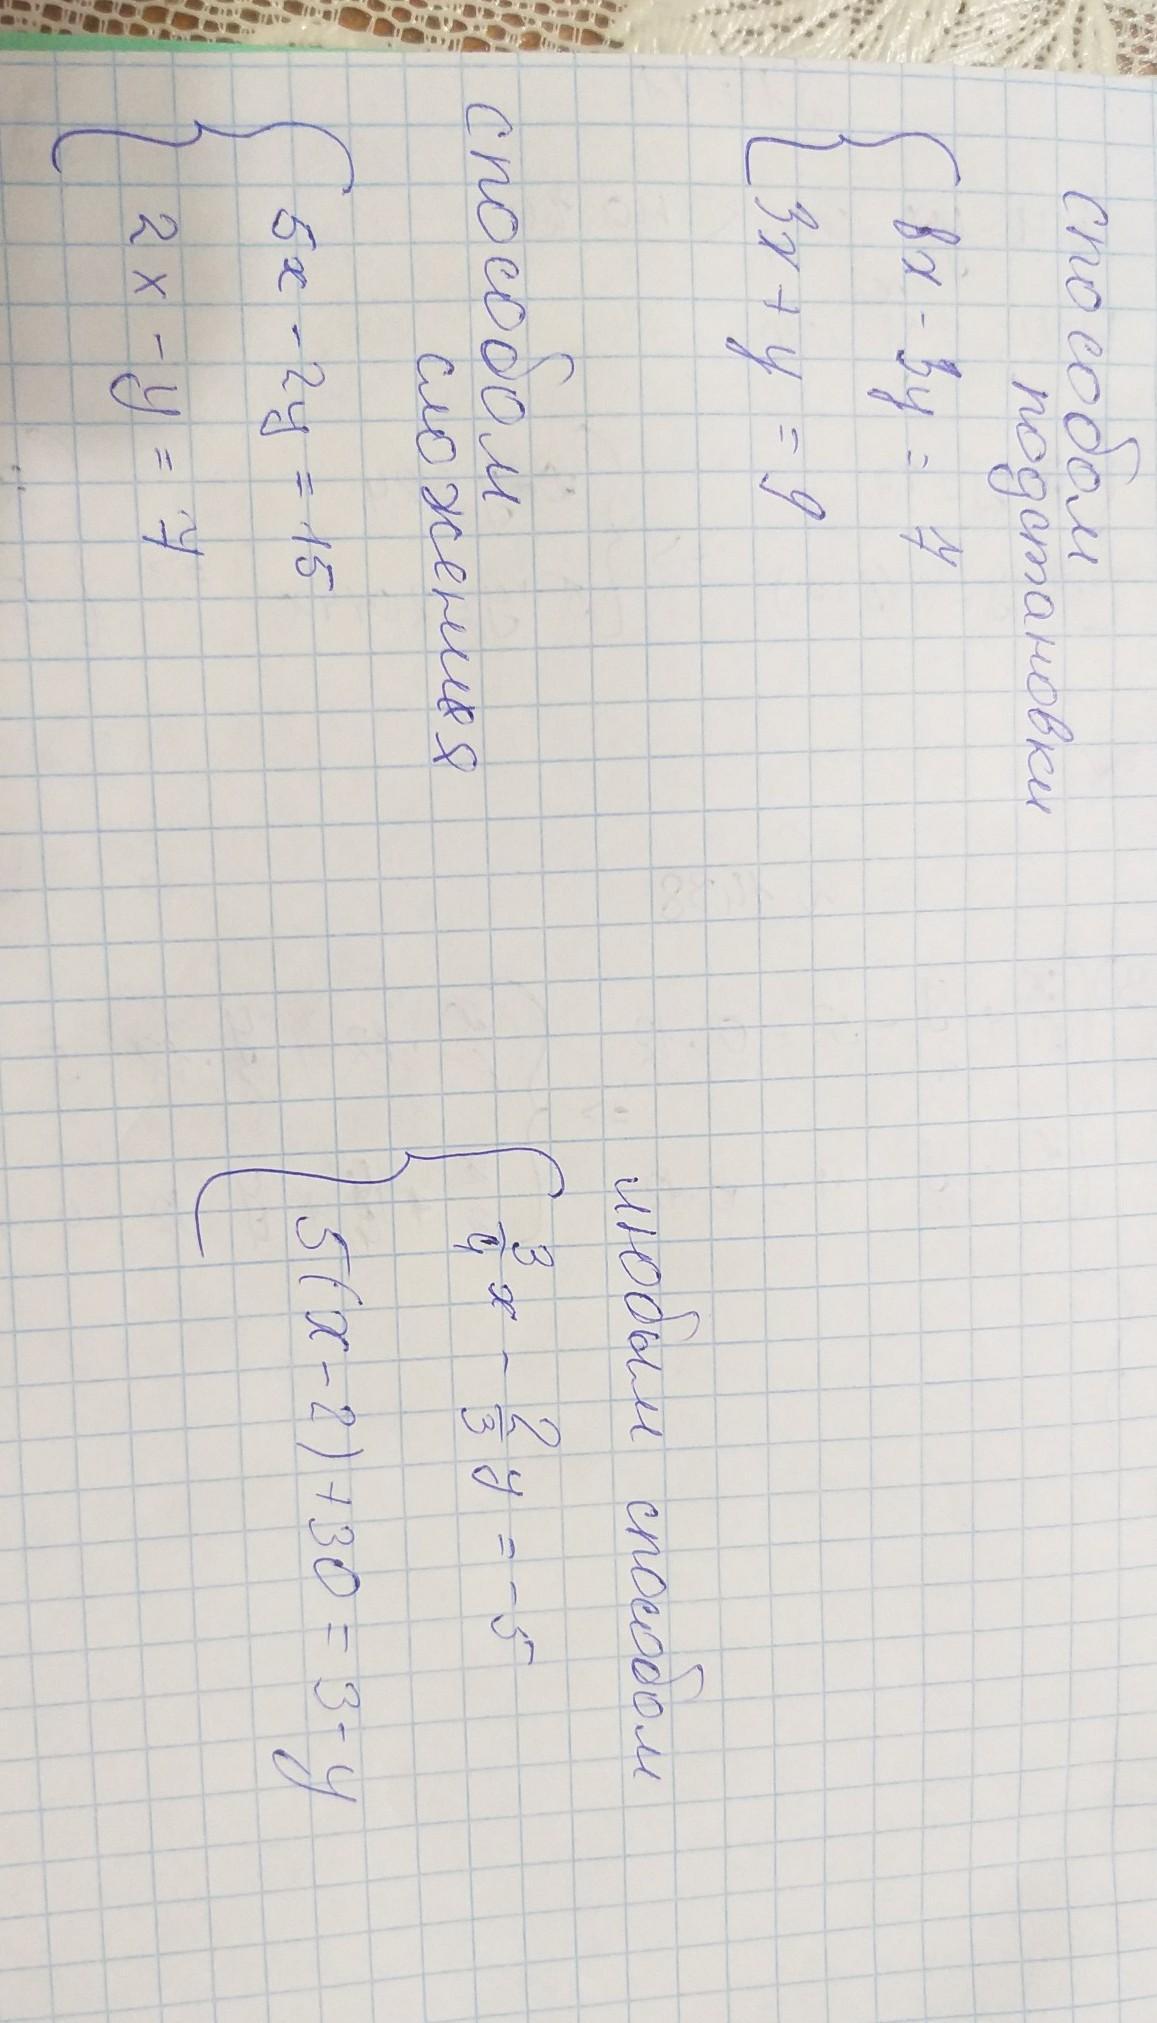 способом
подстановки
8x - 3y = 7
3x + y = 9
способом
сложения
5x - 2y = 15
2x - y = 7
любым способом
3/4 x - 2/3 y = -5
5(x-2)+30 = 3-y